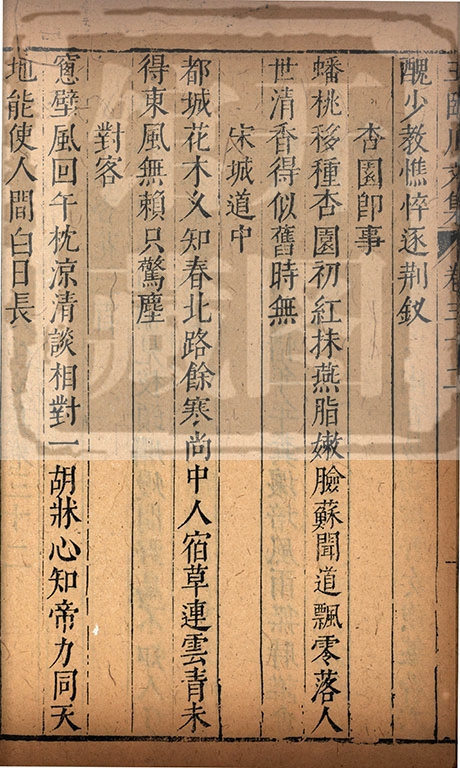 王臨川文集 卷三十二
醜少教憔悴逐荆釵
杏園即事
蟠桃移種杏園初紅抹燕脂嫩臉蘇聞道飄零落人
世清香得似舊時無
宋城道中
都城花木久知春北路餘寒尚中人宿草連雲青未
得東風無賴只驚塵
對客
窻壁風回午枕凉清談相對一胡牀心知帝力同天
地能使人間白日長